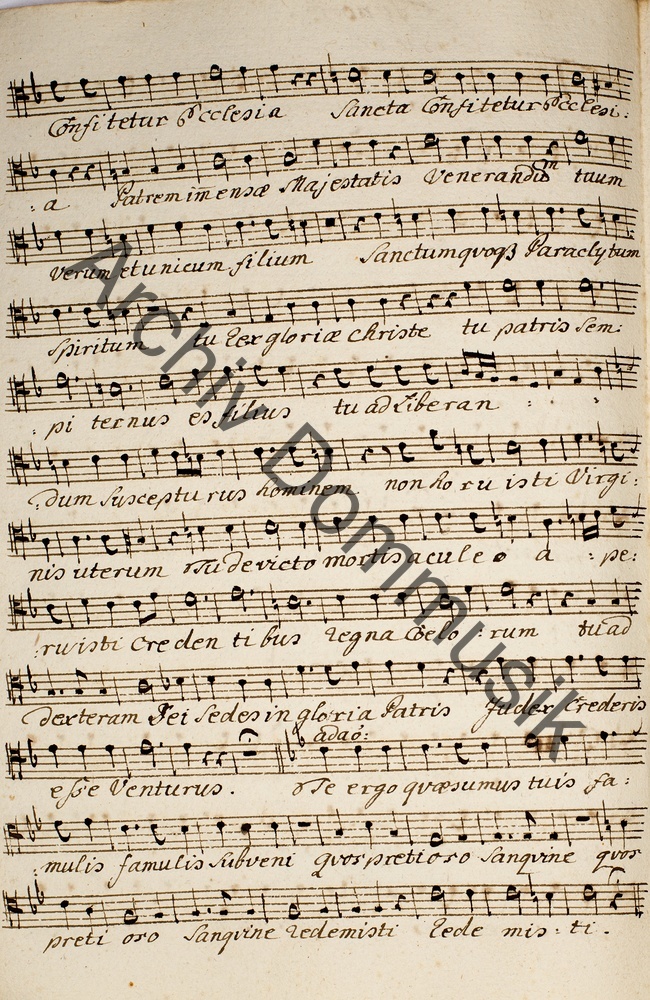 Confitetur Ecclesia Sancta Confitetur Ecclesi:
:a Patrem imensæ Majestatis Venerandũ tuum
verum et unicum filium Sanctum quoqȝ Paraclytum
Spiritum tu Rex gloriæ Christe tu patris Sem:
:pi ternus es filius tu ad Liberan :
:dum Suscepturus hominem non horu isti Virgi:
nis uterum Tu devicto mortis aculeo a :pe:
:ruisti Creden tibus regna Coelo:rum tu ad
dexteram Dei Sedes in gloria Patris Judex Crederis
adaõ:
esse Venturus. Te ergo quæsumus tuis fa:
:mulis famulis Subveni quos pretioso Sanquine quos
preti oso Sanquine Redemisti Rede mis:ti.
Archiv Dommusik